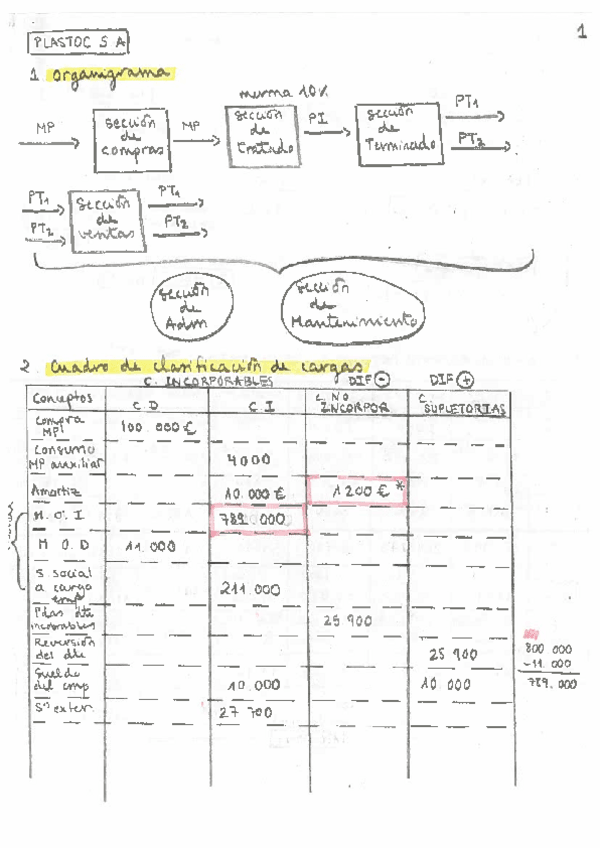 1
PLASTOC S A
1 organigrama
merma 10%
MP
sección
de
compras
MP
sección
de
tratado
PI
sección
de
Terminado
PT1
PT2
PT1
PT2
sección
de
ventas
PT1
PT2
sección
de
Adm
sección
de
Mantenimiento
2 Cuadro de clasificación de cargas
C. INCORPORABLES DIF - DIF +
Conceptos C D C I C NO INCORPOR C. SUPLETORIAS
Compra MP 100.000€
Consumo MP auxiliar 4000
Amortiz 10.000€ 1200€ *
M.O.I 789.000
M O D 11.000
S. social a cargo emp 211.000
Pdas dte incobrables 25 900
Reversión des dte 25 900
Sueldo del emp 10.000 10 000
Sº exter. 27 700
800 000
-11.000
789.000